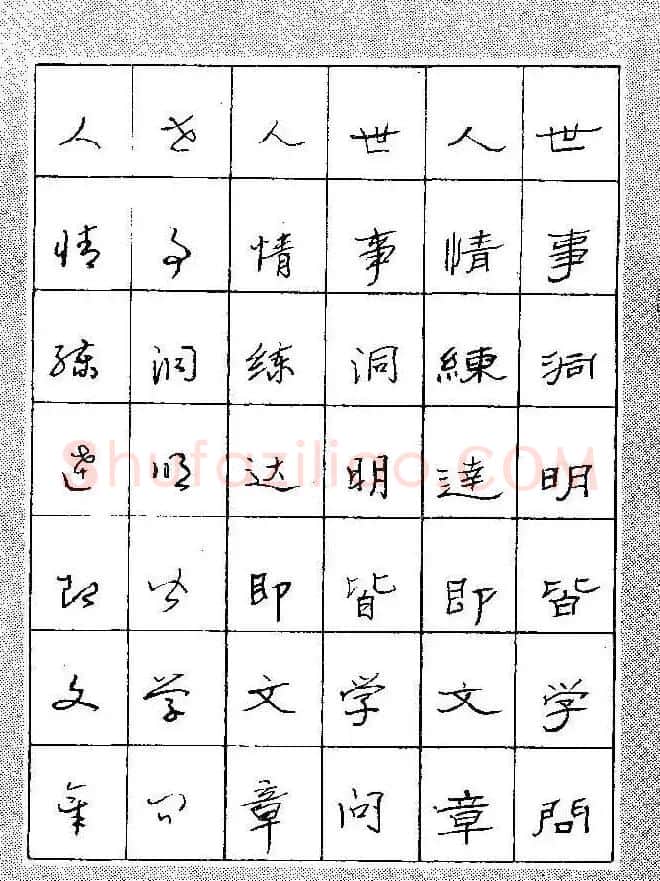 世事洞明皆学問
人情練達即文章
世事洞明皆学问
人情练达即文章
世事洞明皆学问
人情练达即文章
Shufaziliao.COM